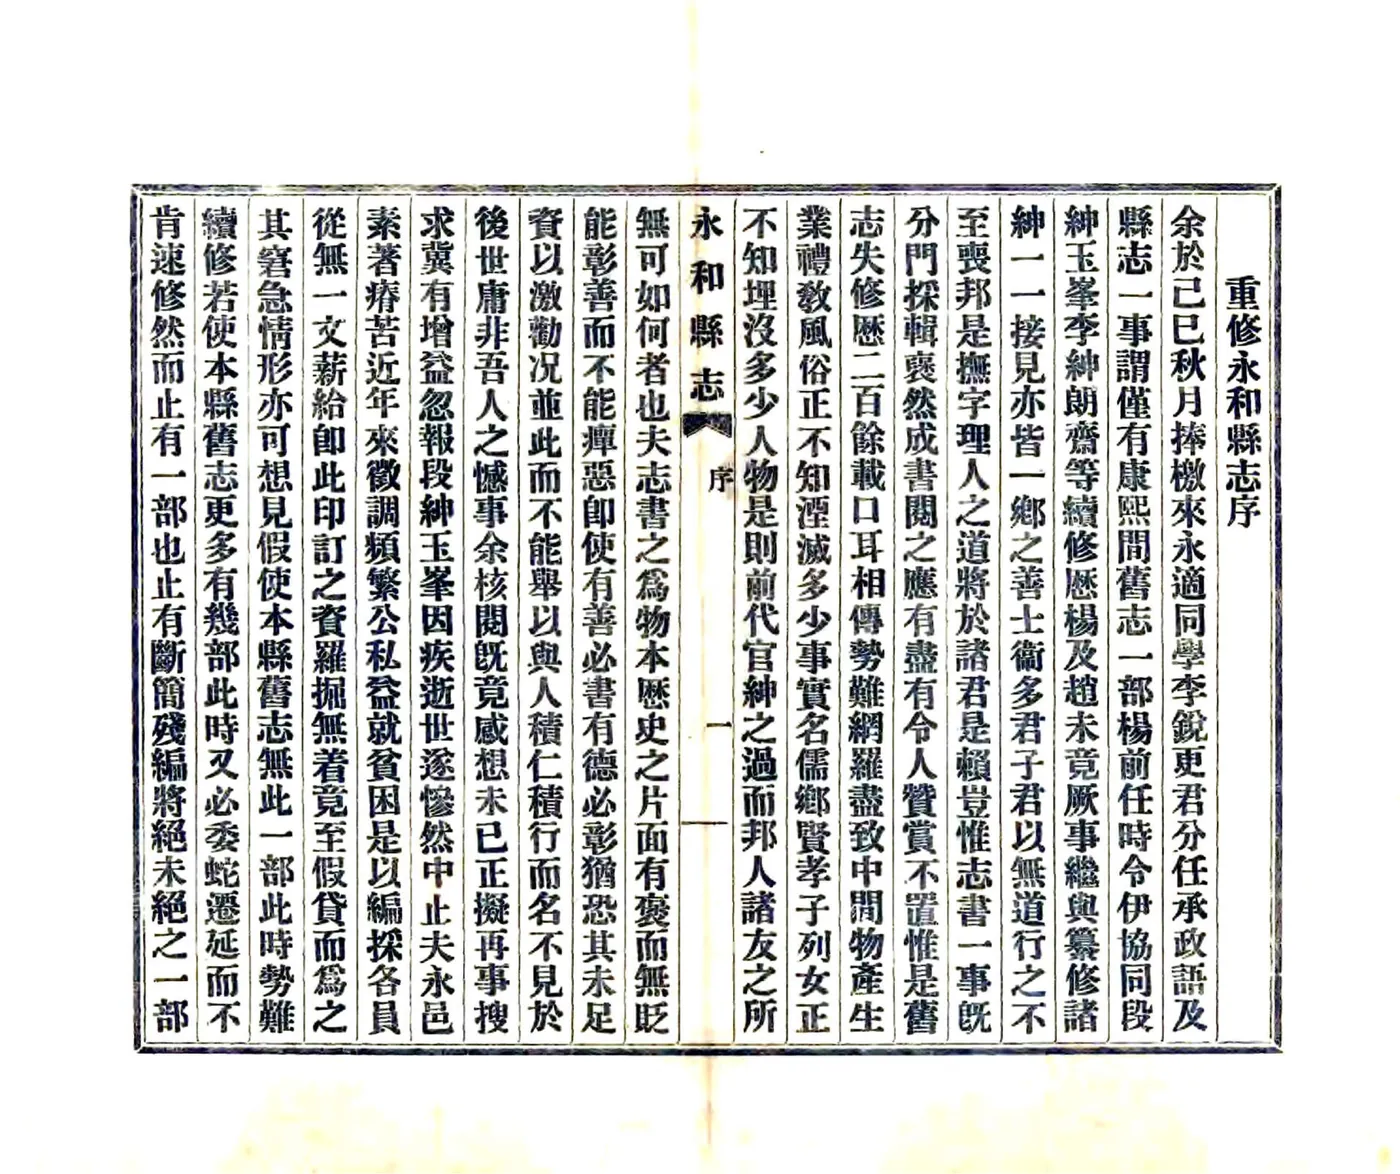 重修永和縣志序
余於己巳秋月捧檄來永適同學李銳更君分任承政語及
縣志一事謂僅有康熙間舊志一部楊前任時令伊協同段
紳玉峯李紳朗齋等續修歷楊及趙未竟厥事繼與纂修諸
紳一一接見亦皆一鄉之善士衞多君子君以無道行之不
至喪邦是撫字理人之道將於諸君是賴豈惟志書一事旣
分門採輯裒然成書閱之應有盡有令人贊賞不置惟是舊
志失修歷二百餘載口耳相傳勢難網羅盡致中間物產生
業禮敎風俗正不知湮滅多少事實名儒鄉賢孝子列女正
不知埋沒多少人物是則前代官紳之過而邦人諸友之所
永和縣志
序
一
無可如何者也夫志書之爲物本歷史之片面有褒而無貶
能彰善而不能癉惡卽使有善必書有德必彰猶恐其未足
資以激勸况並此而不能舉以與人積仁積行而名不見於
後世庸非吾人之憾事余核閱旣竟感想未已正擬再事搜
求冀有增益忽報段紳玉峯因疾逝世遂慘然中止夫永邑
素著瘠苦近年來徵調頻繁公私益就貧困是以編採各員
從無一文薪給卽此印訂之資羅掘無着竟至假貸而爲之
其窘急情形亦可想見假使本縣舊志無此一部此時勢難
續修若使本縣舊志更多有幾部此時又必委蛇遷延而不
肯速修然而止有一部也止有斷簡殘編將絕未絕之一部